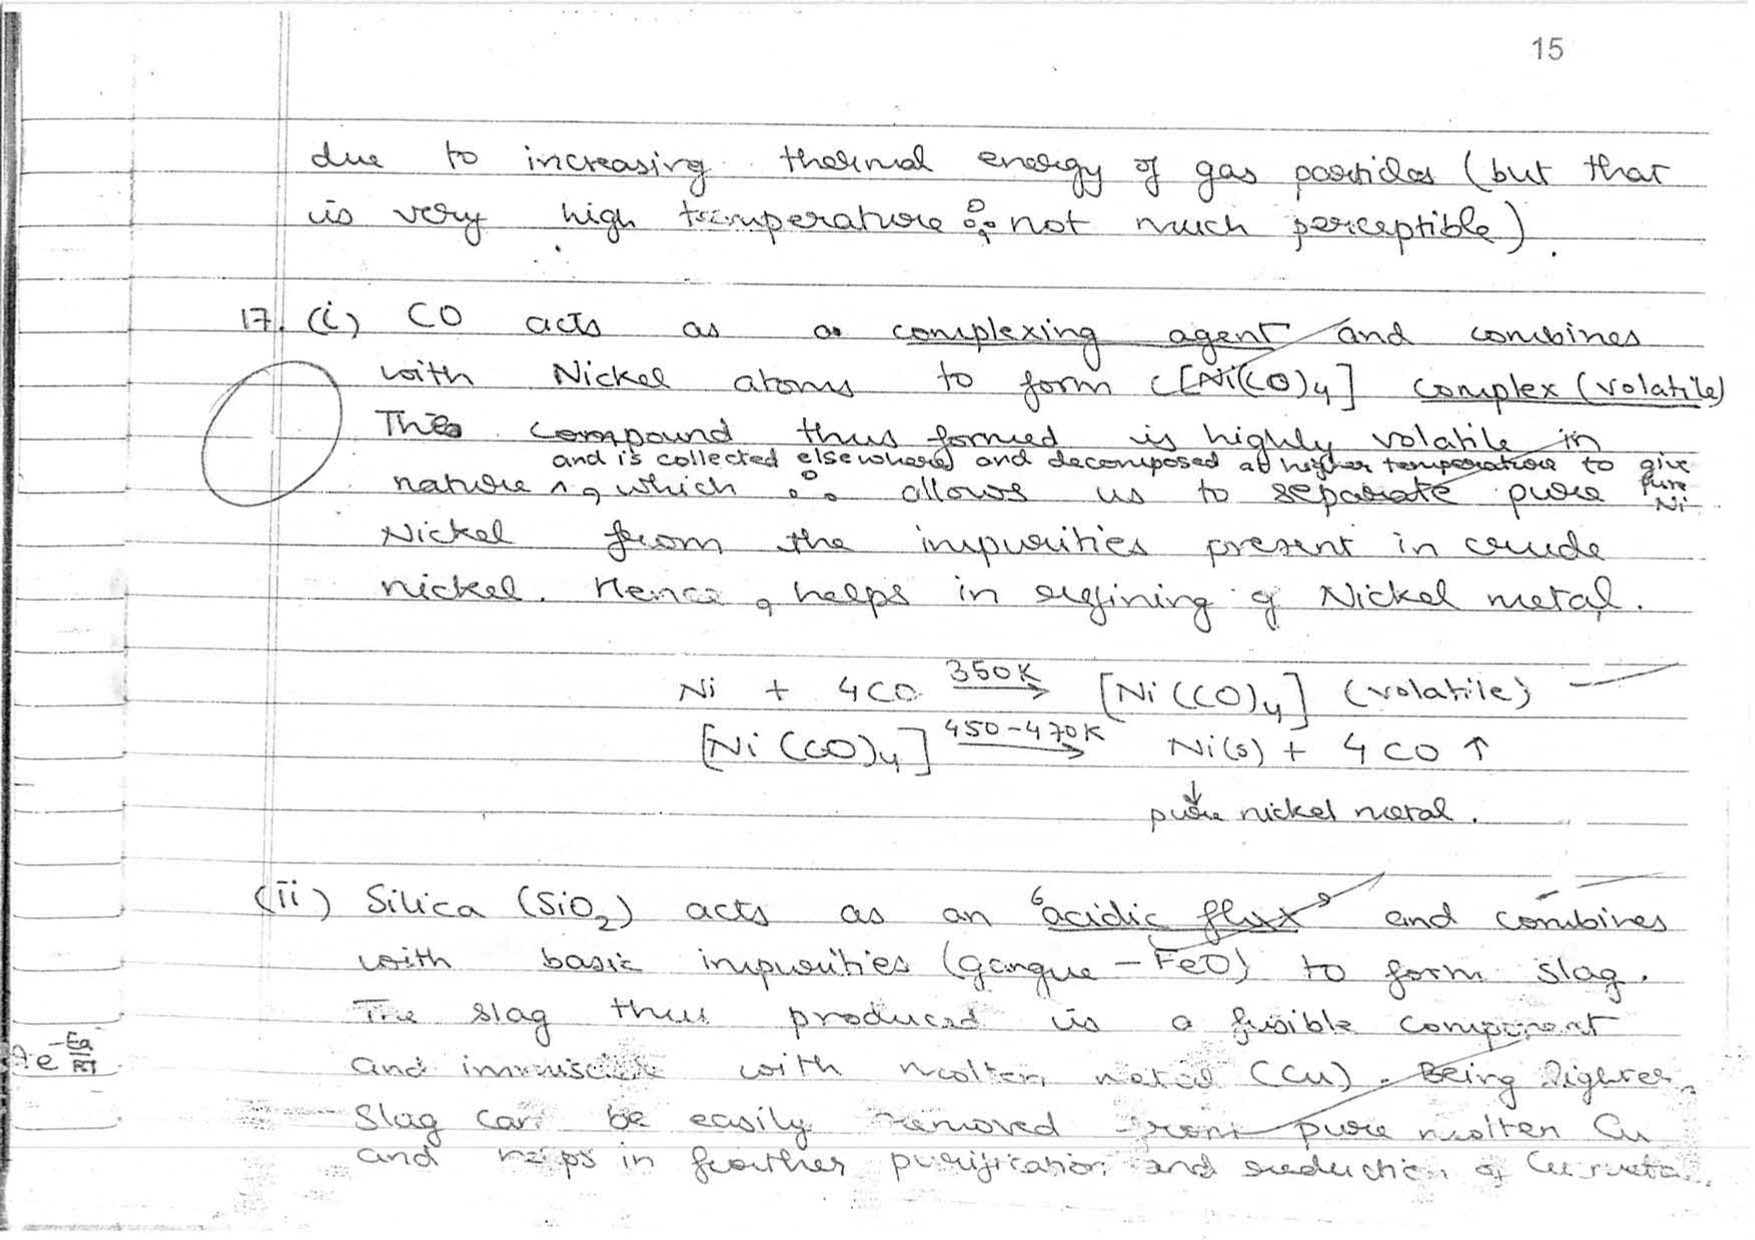 15
due to increasing thermal energy of gas particles (but that
is very high temperature ∴, not much perceptible).
17. (i) CO acts as a complexing agent and combines
with Nickel atoms to form [Ni(CO)4] complex (volatile)
This compound thus formed is highly volatile in
and is collected elsewhere and decomposed at higher temperature to give pure Ni
nature ^, which ∴ allows us to separate pure
Nickel from the impurities present in crude
nickel. Hence, helps in refining of Nickel metal.
Ni + 4CO 350K → [Ni(CO)4] (volatile)
[Ni(CO)4] 450-470K → Ni(s) + 4CO ↑
↓
pure nickel metal.
(ii) Silica (SiO2) acts as an 'acidic flux' and combines
with basic impurities (gangue - FeO) to form slag.
The slag thus produced is a fusible component
and immiscible with molten metal (Cu). Being lighter,
e^-Ea/RT
slag can be easily removed from pure molten Cu
and helps in further purification and reduction of Cu metal.